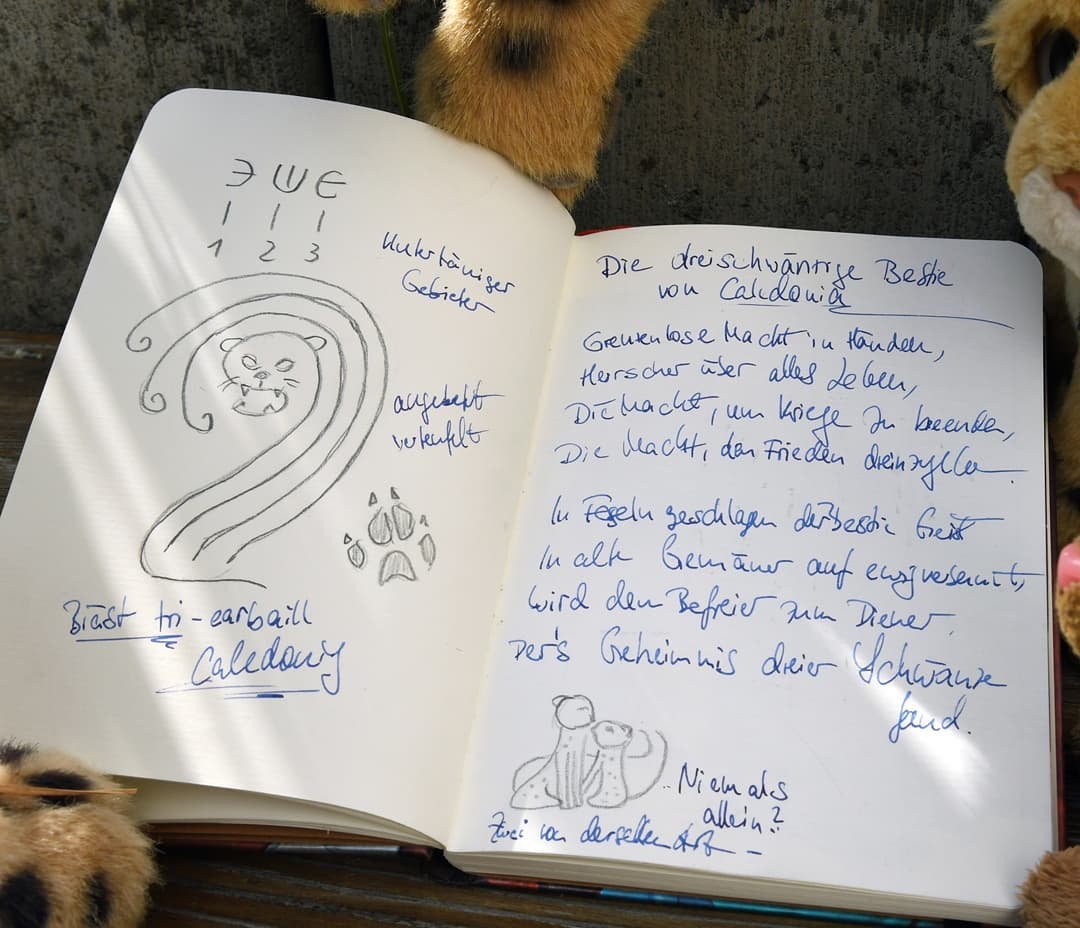 Э Ш Є
1 2 3
Untertäniger
Gebieter
angebetet
verteufelt
Biast tri-earbaill
Caledonia
Die dreischwänzige Bestie
von Caledonia
Grenzenlose Macht in Händen,
Herrscher über alles Leben,
Die Macht, um Kriege zu beenden,
Die Macht, den Frieden
In geschlagen der Geist
In alte Gemäuer auf ewig versenkt,
Wird dem Befreier zum Diener,
Der's Geheimnis dreier Schwänze
fand.
Niemals
allein?
Zwei von derselben Art –